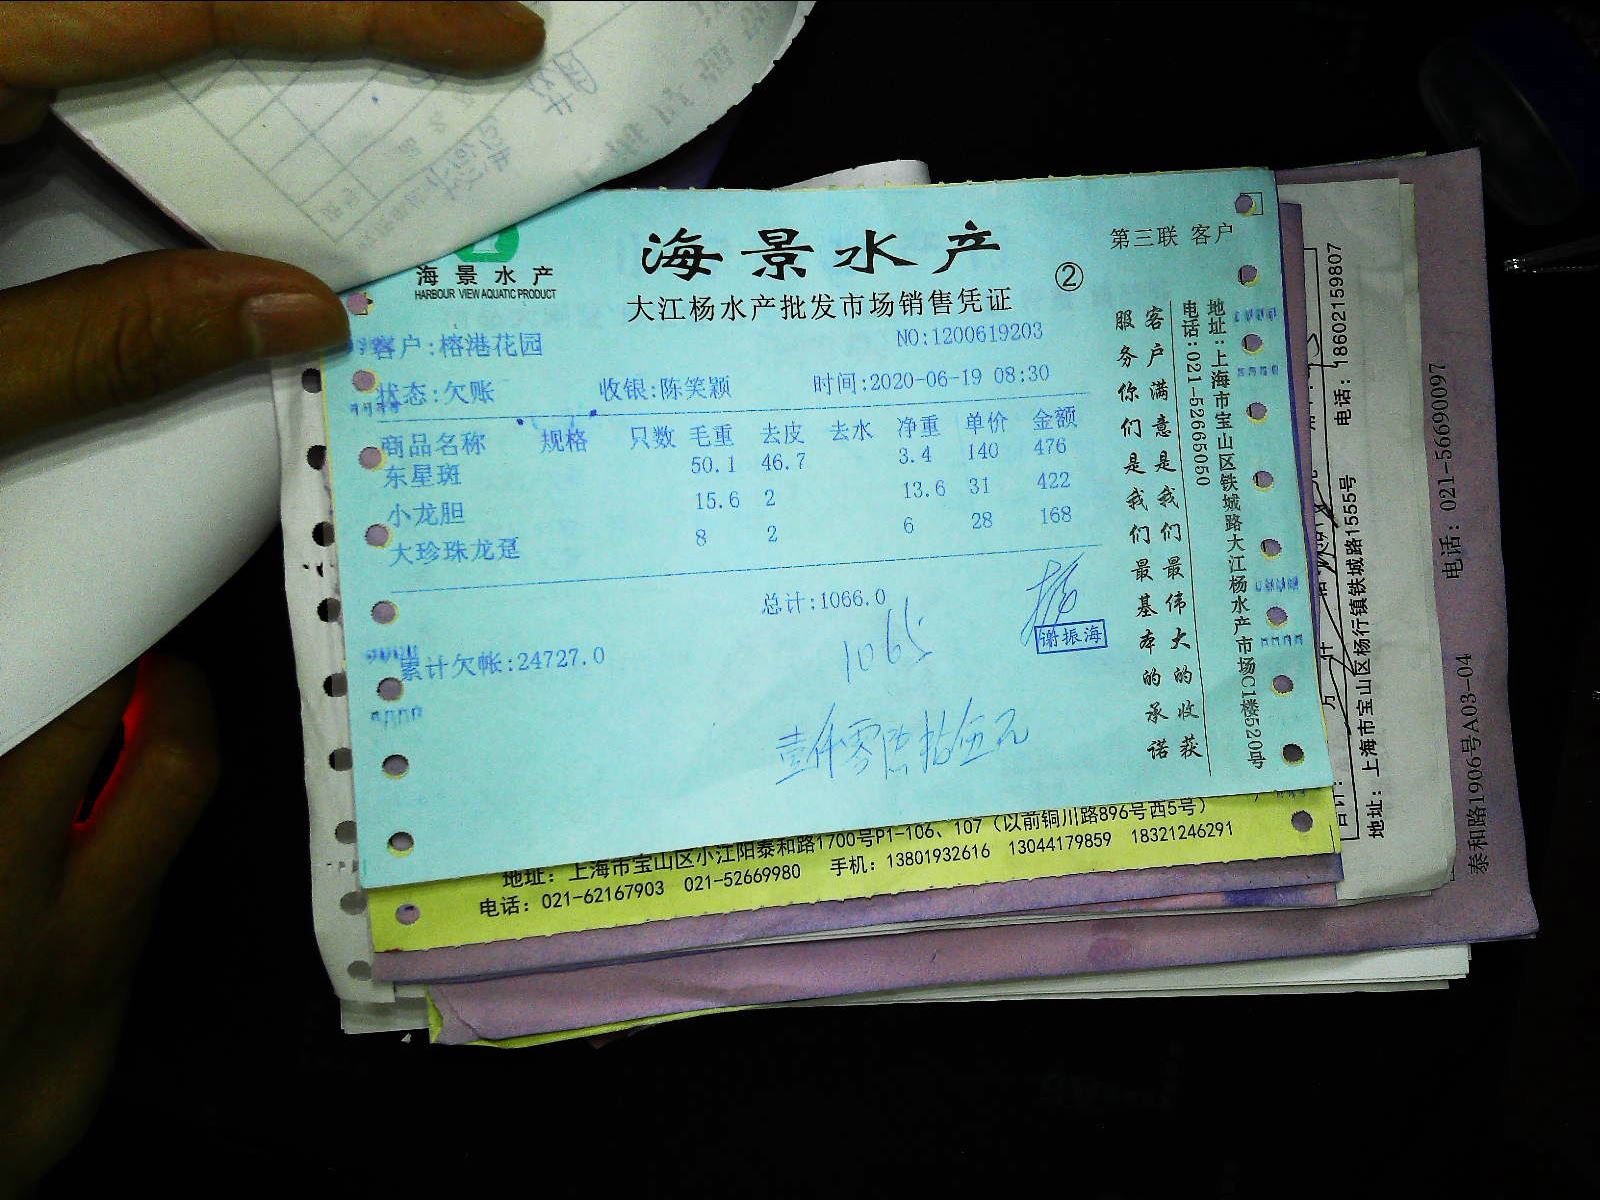 海景水产
HARBOUR VIEW AQUATIC PRODUCT
海景水产
大江杨水产批发市场销售凭证
②
第三联 客户
客户:榕港花园
NO:1200619203
状态:欠账 收银:陈笑颖 时间:2020-06-19 08:30
商品名称 规格 只数 毛重 去皮 去水 净重 单价 金额
东星斑 50.1 46.7 3.4 140 476
小龙胆 15.6 2 13.6 31 422
大珍珠龙趸 8 2 6 28 168
总计:1066.0
1065
谢振海
累计欠帐:24727.0
壹仟零陆拾伍元
客户满意是我们最伟大的收获
服务你们是我们最基本的承诺
地址:上海市宝山区铁城路大江杨水产市场C1楼520号
电话:021-52665050
地址：上海市宝山区小江阳泰和路1700号P1-106、107（以前铜川路896号西5号）
电话：021-62167903 021-52669980 手机：13801932616 13044179859 18321246291
电话：18602159807
地址：上海市宝山区杨行镇铁城路1555号
电话：021-56690097
泰和路1906号A03-04